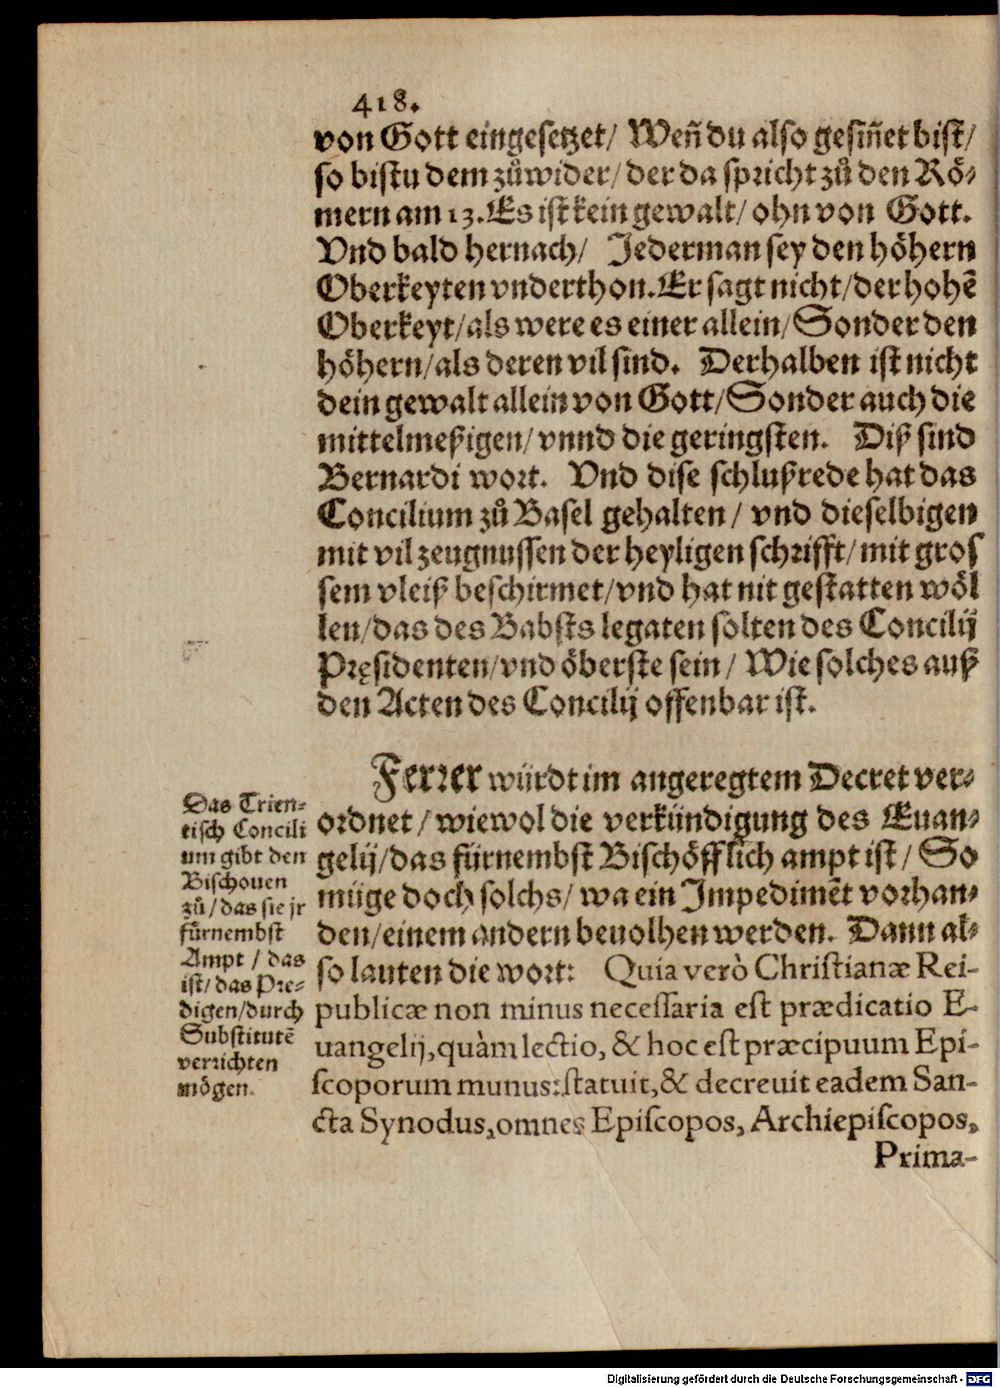 418.
von Gott eingesetzet/ Weñ du also gesiñet bist/
so bistu dem zůwider/ der da spricht zů den Rö-
mern am 13. Es ist kein gewalt/ ohn von Gott.
Vnd bald hernach/ Jederman sey den höhern
Oberkeyten vnderthon. Er sagt nicht/ der hohē
Oberkeyt/ als were es einer allein/ Sonder den
höhern/ als deren vil sind. Derhalben ist nicht
dein gewalt allein von Gott/ Sonder auch die
mittelmeßigen/ vnnd die geringsten. Diß sind
Bernardi wort. Vnd dise schlußrede hat das
Concilium zů Basel gehalten/ vnd dieselbigen
mit vil zeugnussen der heyligen schrifft/ mit gros
sem vleiß beschirmet/ vnd hat nit gestatten wöl
len/ das des Babsts legaten solten des Concilij
Pręsidenten/ vnd öberste sein/ Wie solches auß
den Acten des Concilij offenbar ist.
Ferrer würdt im angeregtem Decret ver-
ordnet/ wiewol die verkündigung des Euan-
gelij/ das fürnembst Bischöfflich ampt ist/ So
müge doch solchs/ wa ein Impedimēt vorhan-
den/ einem andern beuolhen werden. Dann al-
so lauten die wort: Quia verò Christianæ Rei-
publicæ non minus necessaria est prædicatio E-
uangelij, quàm lectio, & hoc est præcipuum Epi-
scoporum munus: statuit, & decreuit eadem San-
cta Synodus, omnes Episcopos, Archiepiscopos,
Prima-
Das Trien-
tisch Concili
um gibt den
Bischouen
zů/ das sie jr
fürnembst
Ampt/ das
ist/ das Pre-
digen/ durch
Substitutē
verrichten
mögen.
Digitalisierung gefördert durch die Deutsche Forschungsgemeinschaft - DFG